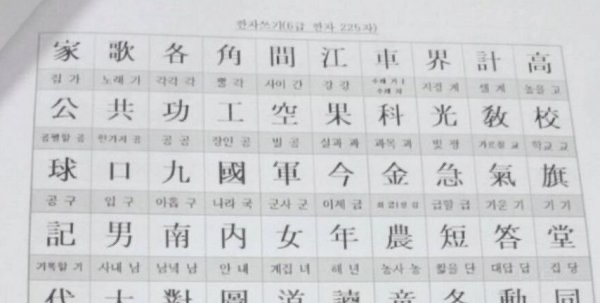 한자쓰기(6급 한자 225자)
家 歌 各 角 間 江 車 界 計 高
집 가 노래 가 각각 각 뿔 각 사이 간 강 강 수레 거 / 수레 차 지경 계 셀 계 높을 고
公 共 功 工 空 果 科 光 敎 校
공평할 공 한가지 공 공 공 장인 공 빌 공 실과 과 과목 과 빛 광 가르칠 교 학교 교
球 口 九 國 軍 今 金 急 氣 旗
공 구 입 구 아홉 구 나라 국 군사 군 이제 금 급할 급 기운 기 기 기
記 男 南 內 女 年 農 短 答 堂
기록할 기 사내 남 남녘 남 안 내 계집 녀 해 년 농사 농 짧을 단 대답 답 집 당
代 大 對 圖 道 讀 冬 動 同